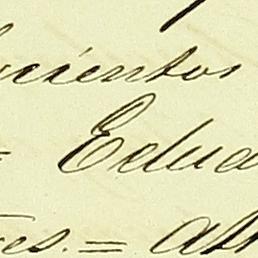 cientos
= Edua
es. = Al